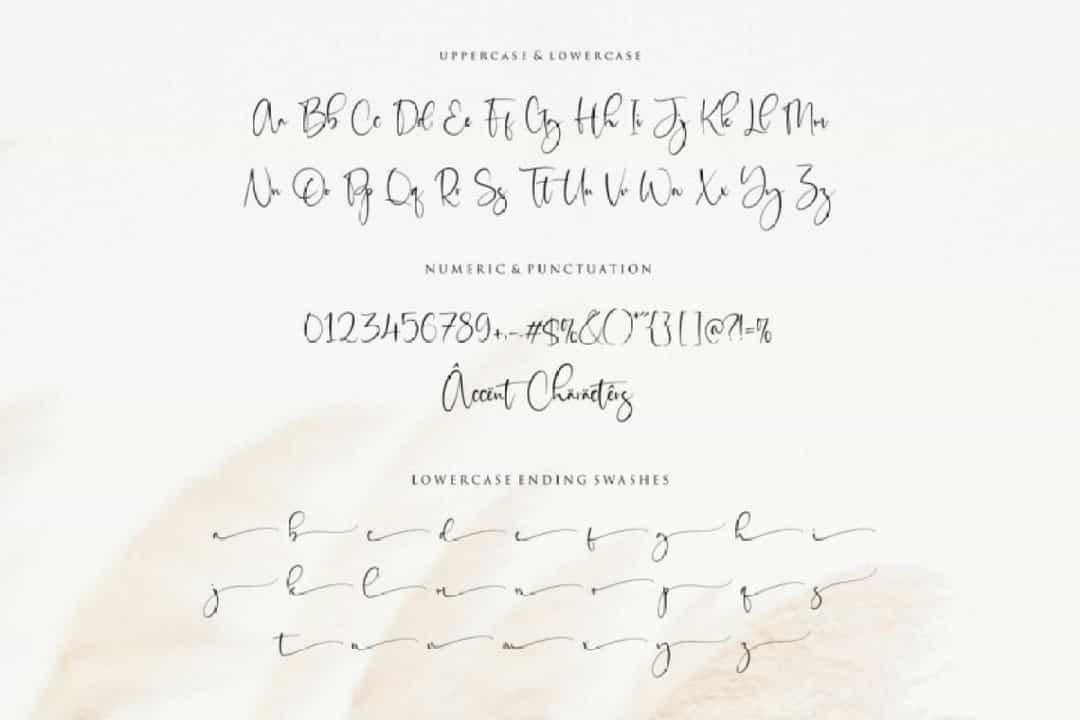 UPPERCASE & LOWERCASE
Aa Bb Cc Dd Ee Ff Gg Hh Ii Jj Kk Ll Mm
Nn Oo Pp Qq Rr Ss Tt Uu Vv Ww Xx Yy Zz
NUMERIC & PUNCTUATION
0123456789+,-.#$%&()*"{}[]@?!=%
Âccënt Chäräctêrs
LOWERCASE ENDING SWASHES
a b c d e f g h i
j k l m n o p q s
t u v w x y z